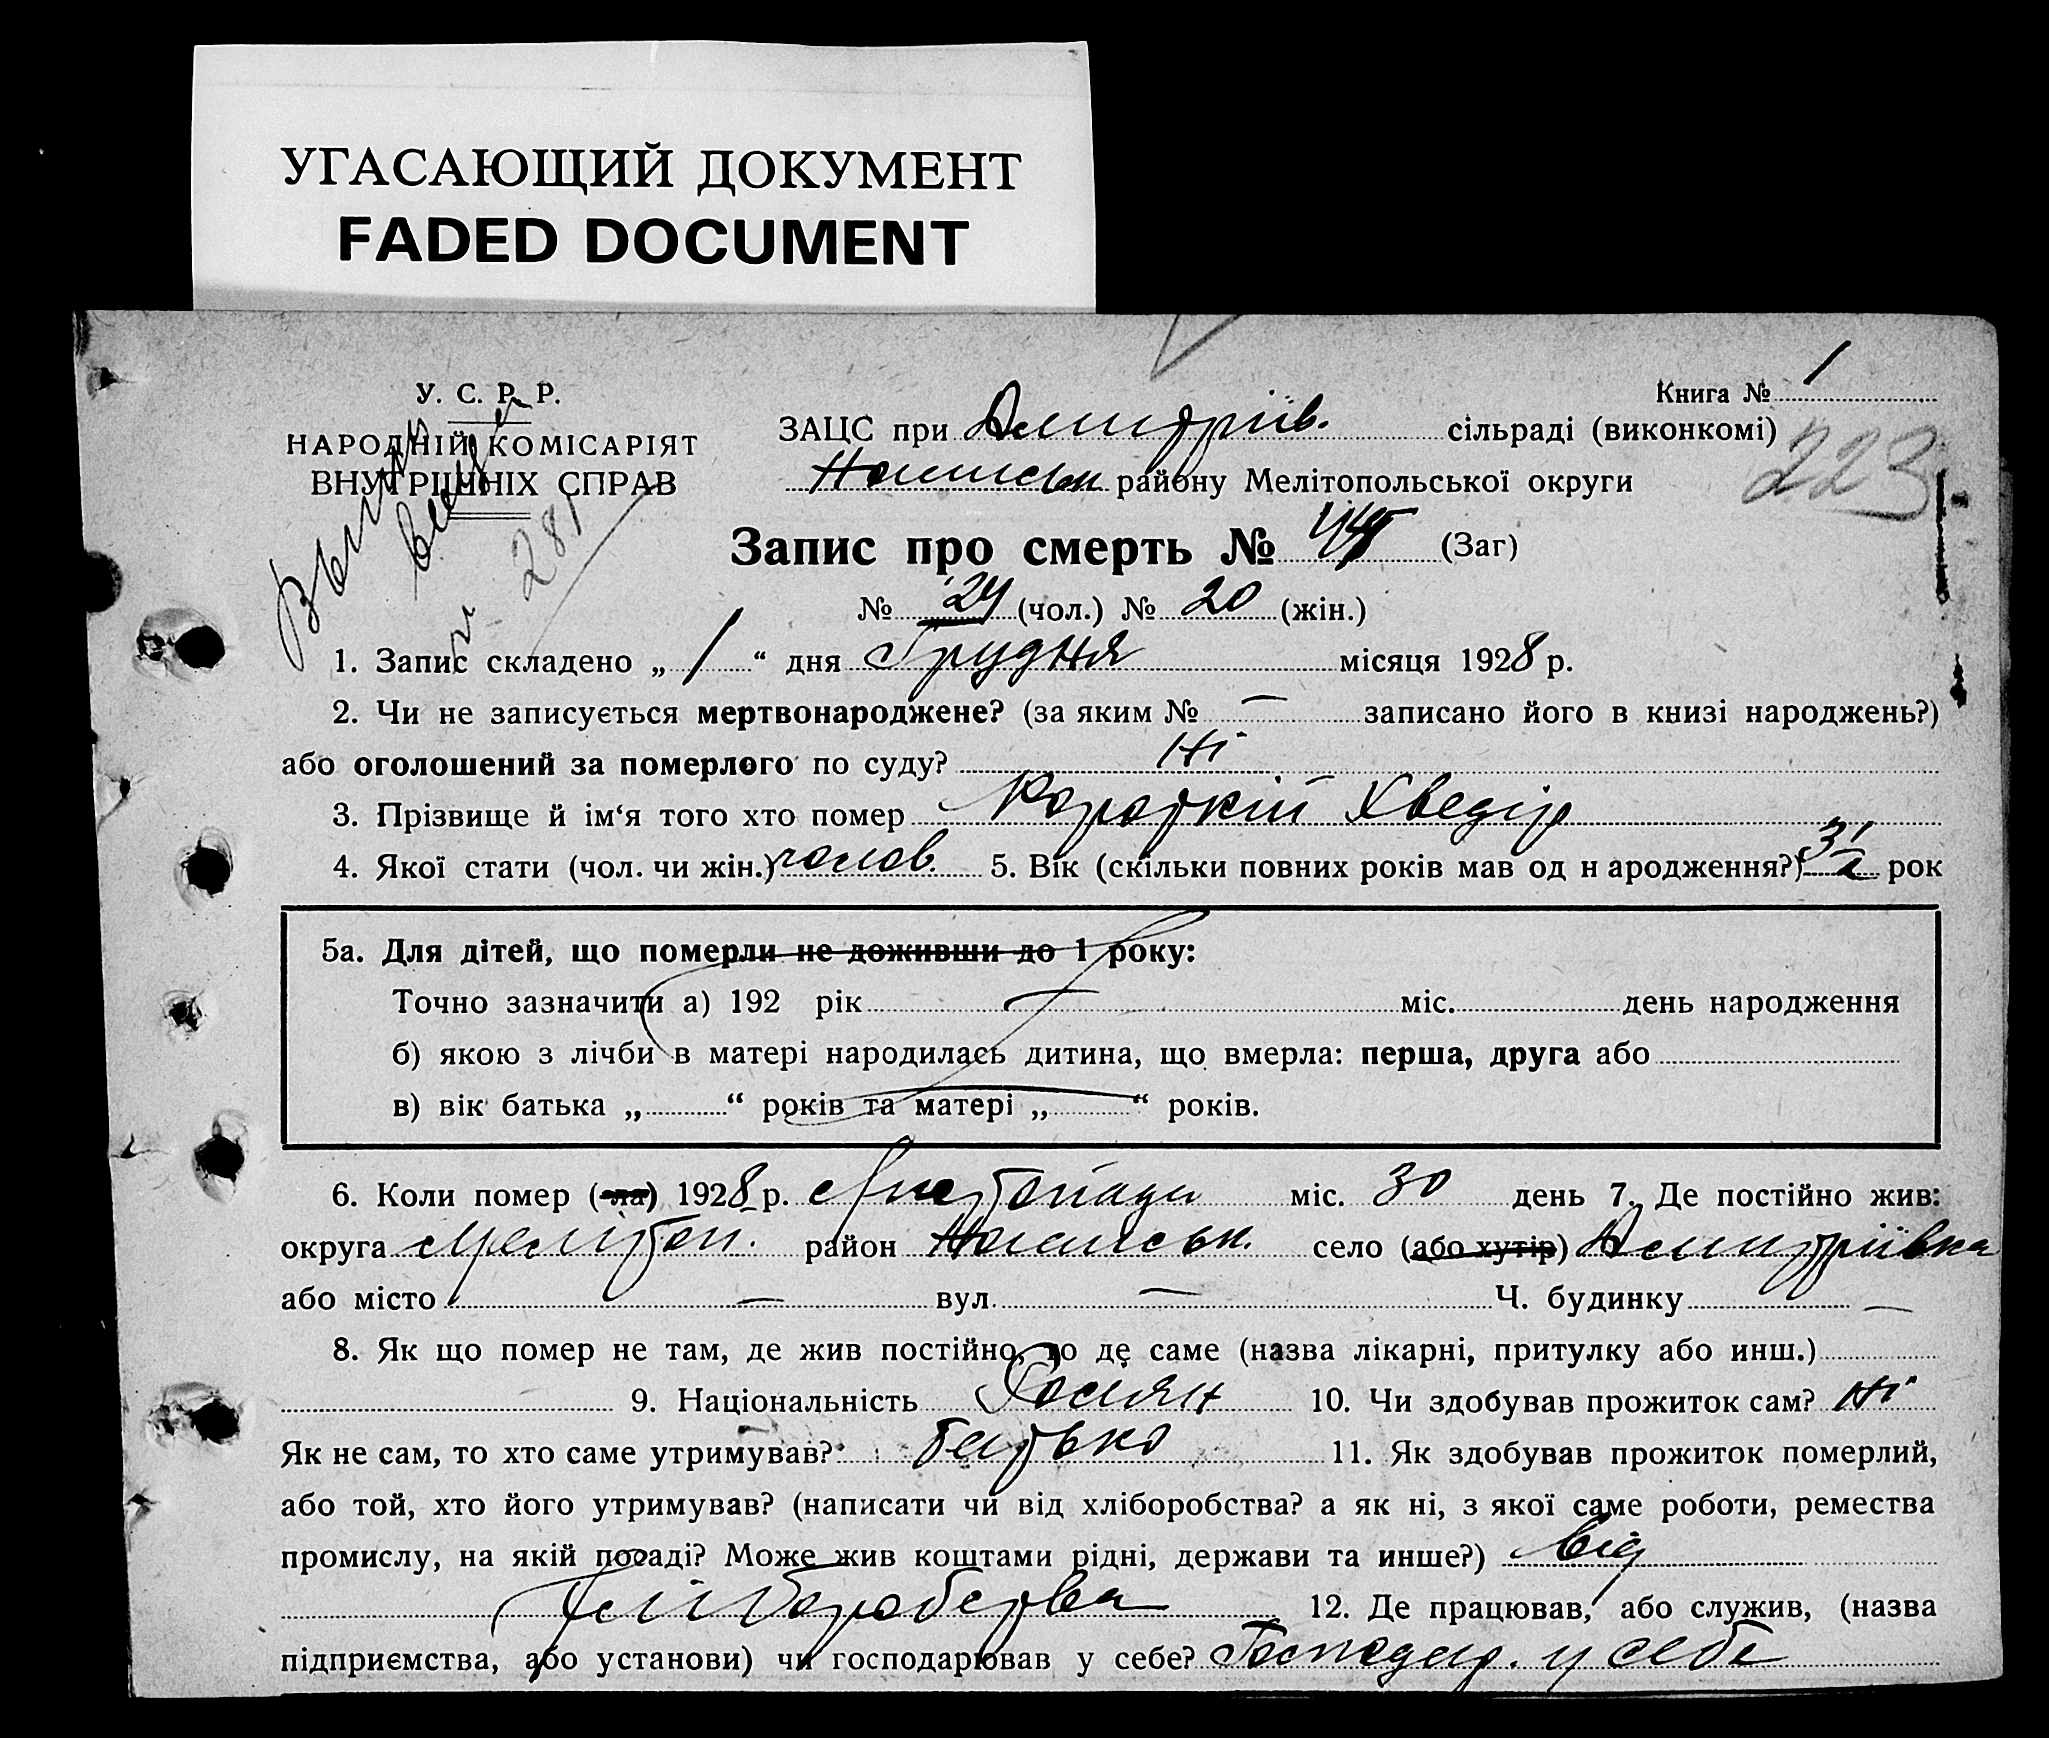 УГАСАЮЩИЙ ДОКУМЕНТ
FADED DOCUMENT
Книга № 1
У. С. Р. Р.
НАРОДНІЙ КОМІСАРІЯТ
ВНУТРІШНІХ СПРАВ
ЗАЦС при Дмитріїв. сільраді (виконкомі)
району Мелітопольської округи
223
Запис про смерть № (Заг)
№ 24 (чол.) № 20 (жін.)
1. Запис складено „ 1 “ дня Грудня місяця 1928 р.
2. Чи не записується мертвонароджене? (за яким № — записано його в книзі народжень?)
або оголошений за померлого по суду? Ні
3. Прізвище й ім‘я того хто помер Короткій Хведір
4. Якої стати (чол. чи жін.) чолов. 5. Вік (скільки повних років мав од н ародження?) 3 1/2 рок
5а. Для дітей, що померли не доживши до 1 року:
Точно зазначити а) 192 рік — міс. день народження
б) якою з лічби в матері народилась дитина, що вмерла: перша, друга або
в) вік батька „ “ років та матері „ “ років.
6. Коли помер (-ла) 1928 р. Листопада міс. 30 день 7. Де постійно жив:
округа Мелітоп. район село (або хутір) Дмитріївка
або місто — вул. — Ч. будинку —
8. Як що помер не там, де жив постійно, то де саме (назва лікарні, притулку або инш.)
9. Національність Росіян 10. Чи здобував прожиток сам? Ні
Як не сам, то хто саме утримував? батько 11. Як здобував прожиток померлий,
або той, хто його утримував? (написати чи від хліборобства? а як ні, з якої саме роботи, ремества
промислу, на якій посаді? Може жив коштами рідні, держави та инше?) від
хліборобства 12. Де працював, або служив, (назва
підприємства, або установи) чи господарював у себе? Господар. у себе